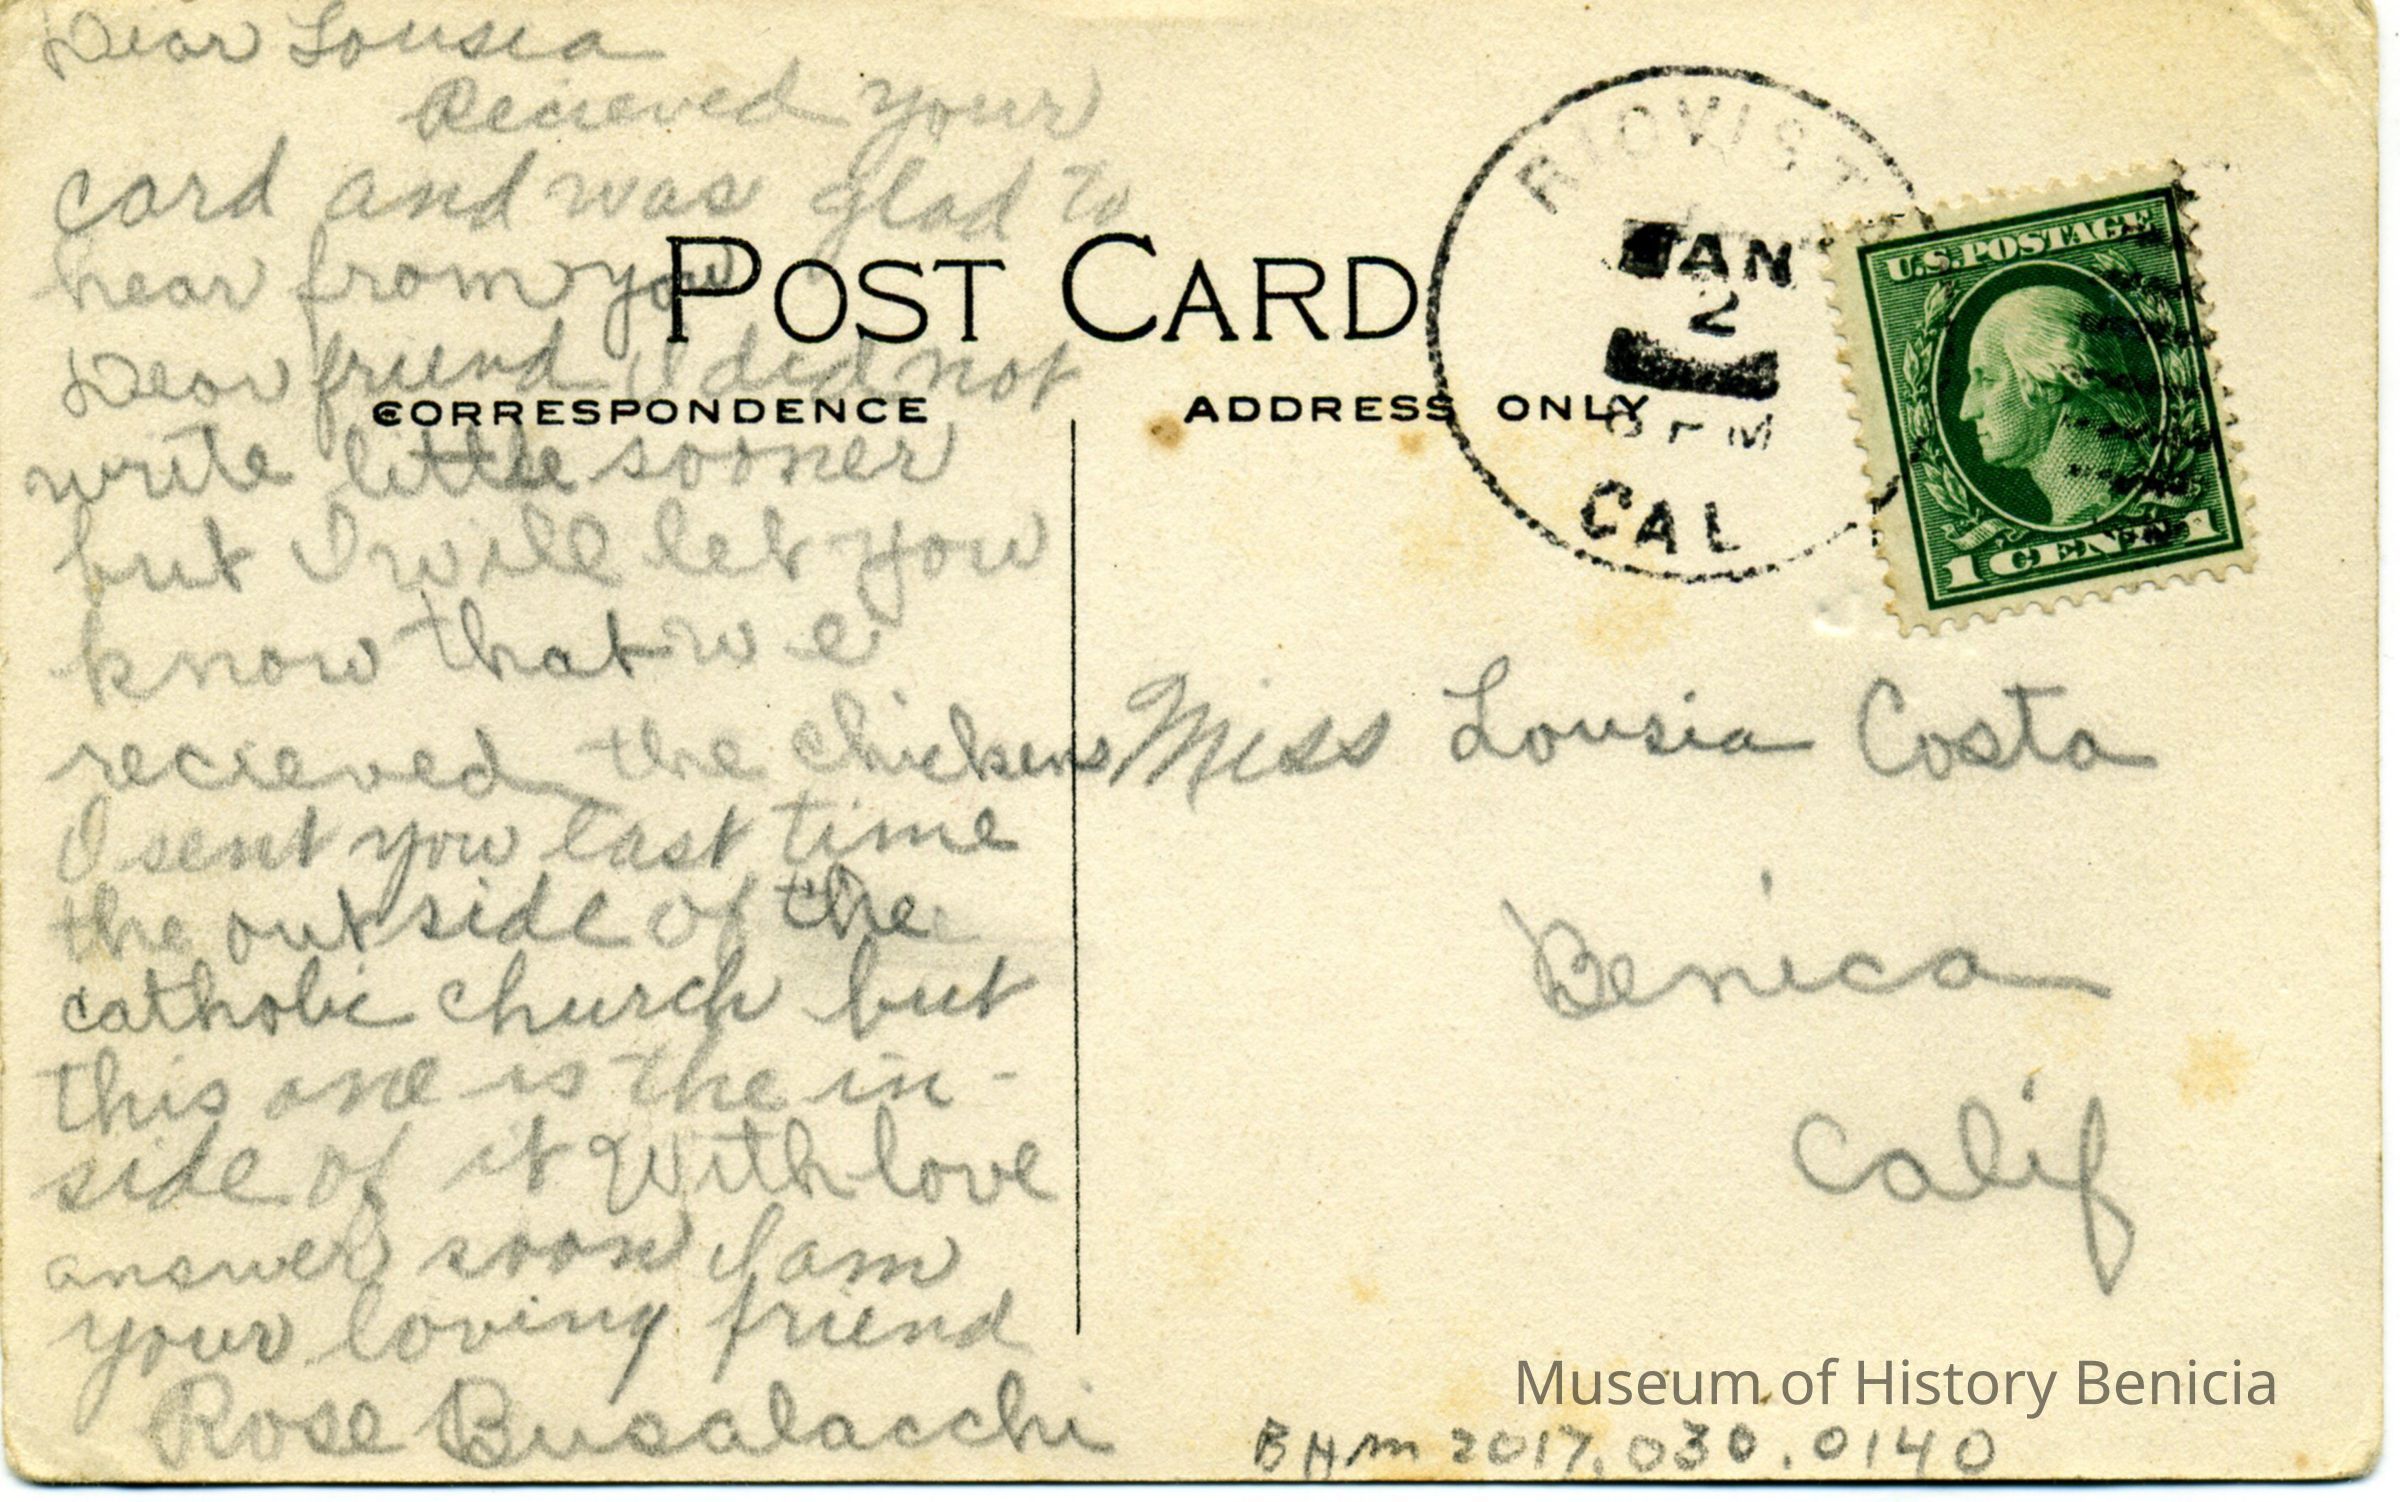 Dear Lousia
Recieved your
card and was glad to
hear from you
Dear friend I did not
write little sooner
but I will let you
know that we
recieved the chickens
I sent you last time
the outside of the
catholic church but
this one is the in-
side of it With love
answer soon I am
your loving friend
Rose Busalacchi
POST CARD
CORRESPONDENCE
ADDRESS ONLY
RIOVIST
JAN
2
PM
CAL
U.S. POSTAGE
1 CENT 1
Miss Lousia Costa
Benica
Calif
Museum of History Benicia
BHM 2017.030.0140